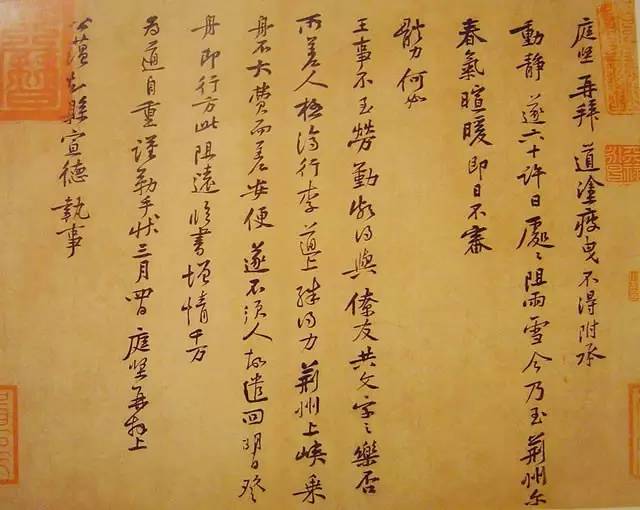 庭堅再拜 道塗疲曳不得附承
動靜遂六十許日處〻阻雨雪今乃至荊州尔
春氣暄暖即日不審
體力何如
王事不至勞勤頗得與僚友共文字之樂否
所差人極濟行李道上殊得力荊州上峽乘
舟不大費而差安便遂不須人故遣回明日登
舟即行方此阻遠臨書增情千万
為道自重謹勒手狀三月四日庭堅再拜上
公蘊知縣宣德執事